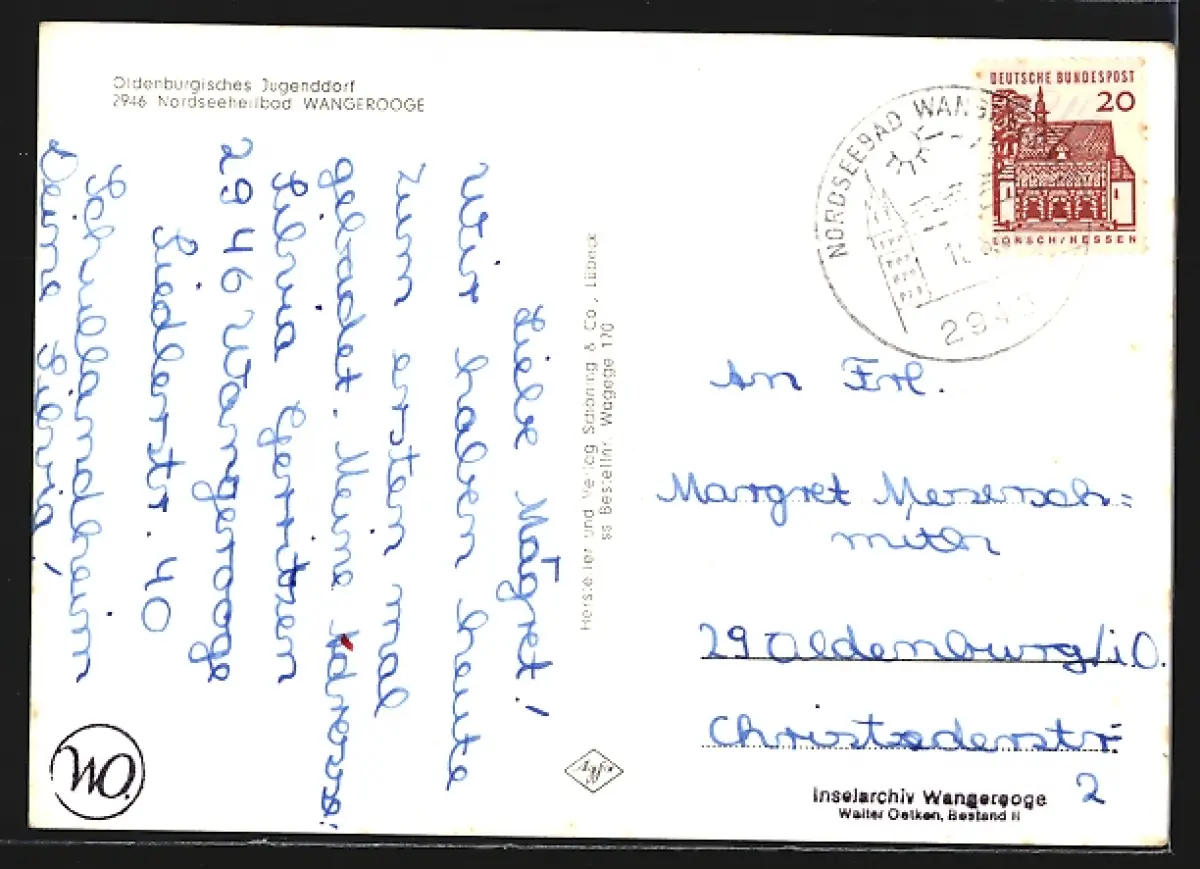 Oldenburgisches Jugenddorf
2946 Nordseeheilbad WANGEROOGE
Liebe Magret!
Wir haben heute
zum ersten mal
gebadet. Meine Adresse:
Silvia Gerritzen
2946 Wangerooge
Siedlerstr. 40
Schullandheim
Deine Silvia!
Hersteller und Verlag Schöning & Co., Lübeck
ss Bestellnr. Wagege 170
NORDSEEBAD WANG
294
DEUTSCHE BUNDESPOST
20
LORSCH/HESSEN
An Frl.
Margret Messersch=
mith
29 Oldenburg/i.O.
Christoderstr.
2
Inselarchiv Wangerooge
Walter Oetken, Bestand II
WO.